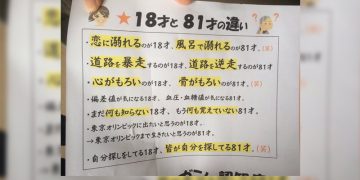 ★18才と81才の違い
・恋に溺れるのが18才、風呂で溺れるのが81才。(笑)
・道路を暴走するのが18才、道路を逆走するのが81才。
・心がもろいのが18才、骨がもろいのが81才。(笑)
・偏差値が気になる18才、血圧・血糖値が気になる81才。
・まだ何も知らない18才、もう何も覚えていない81才。
・東京オリンピックに出たいと思うのが18才、
→東京オリンピックまで生きたいと思うのが81才。
・自分探しをしてる18才、皆が自分を探してる81才。(笑)